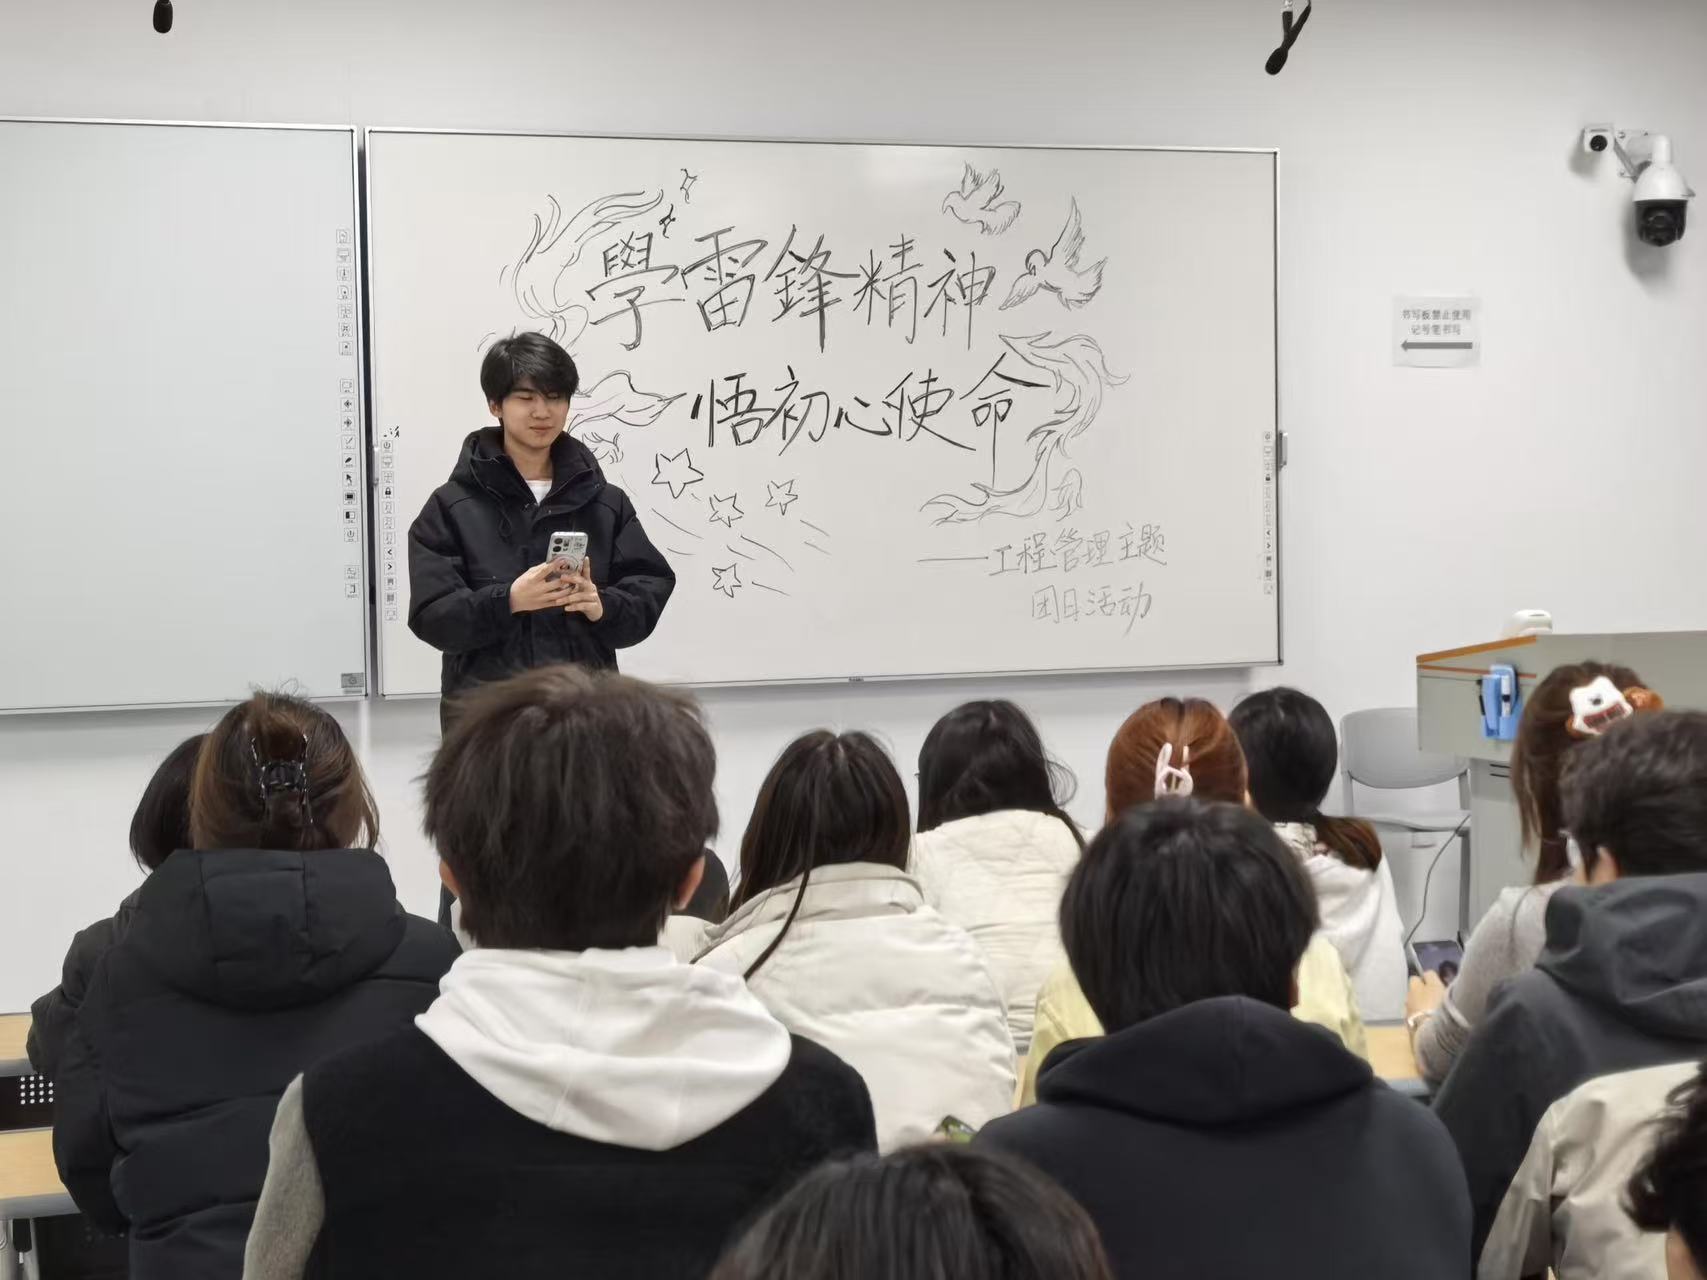 學雷鋒精神
悟初心使命
——工程管理主题
团日活动
书写板禁止使用
记号笔书写